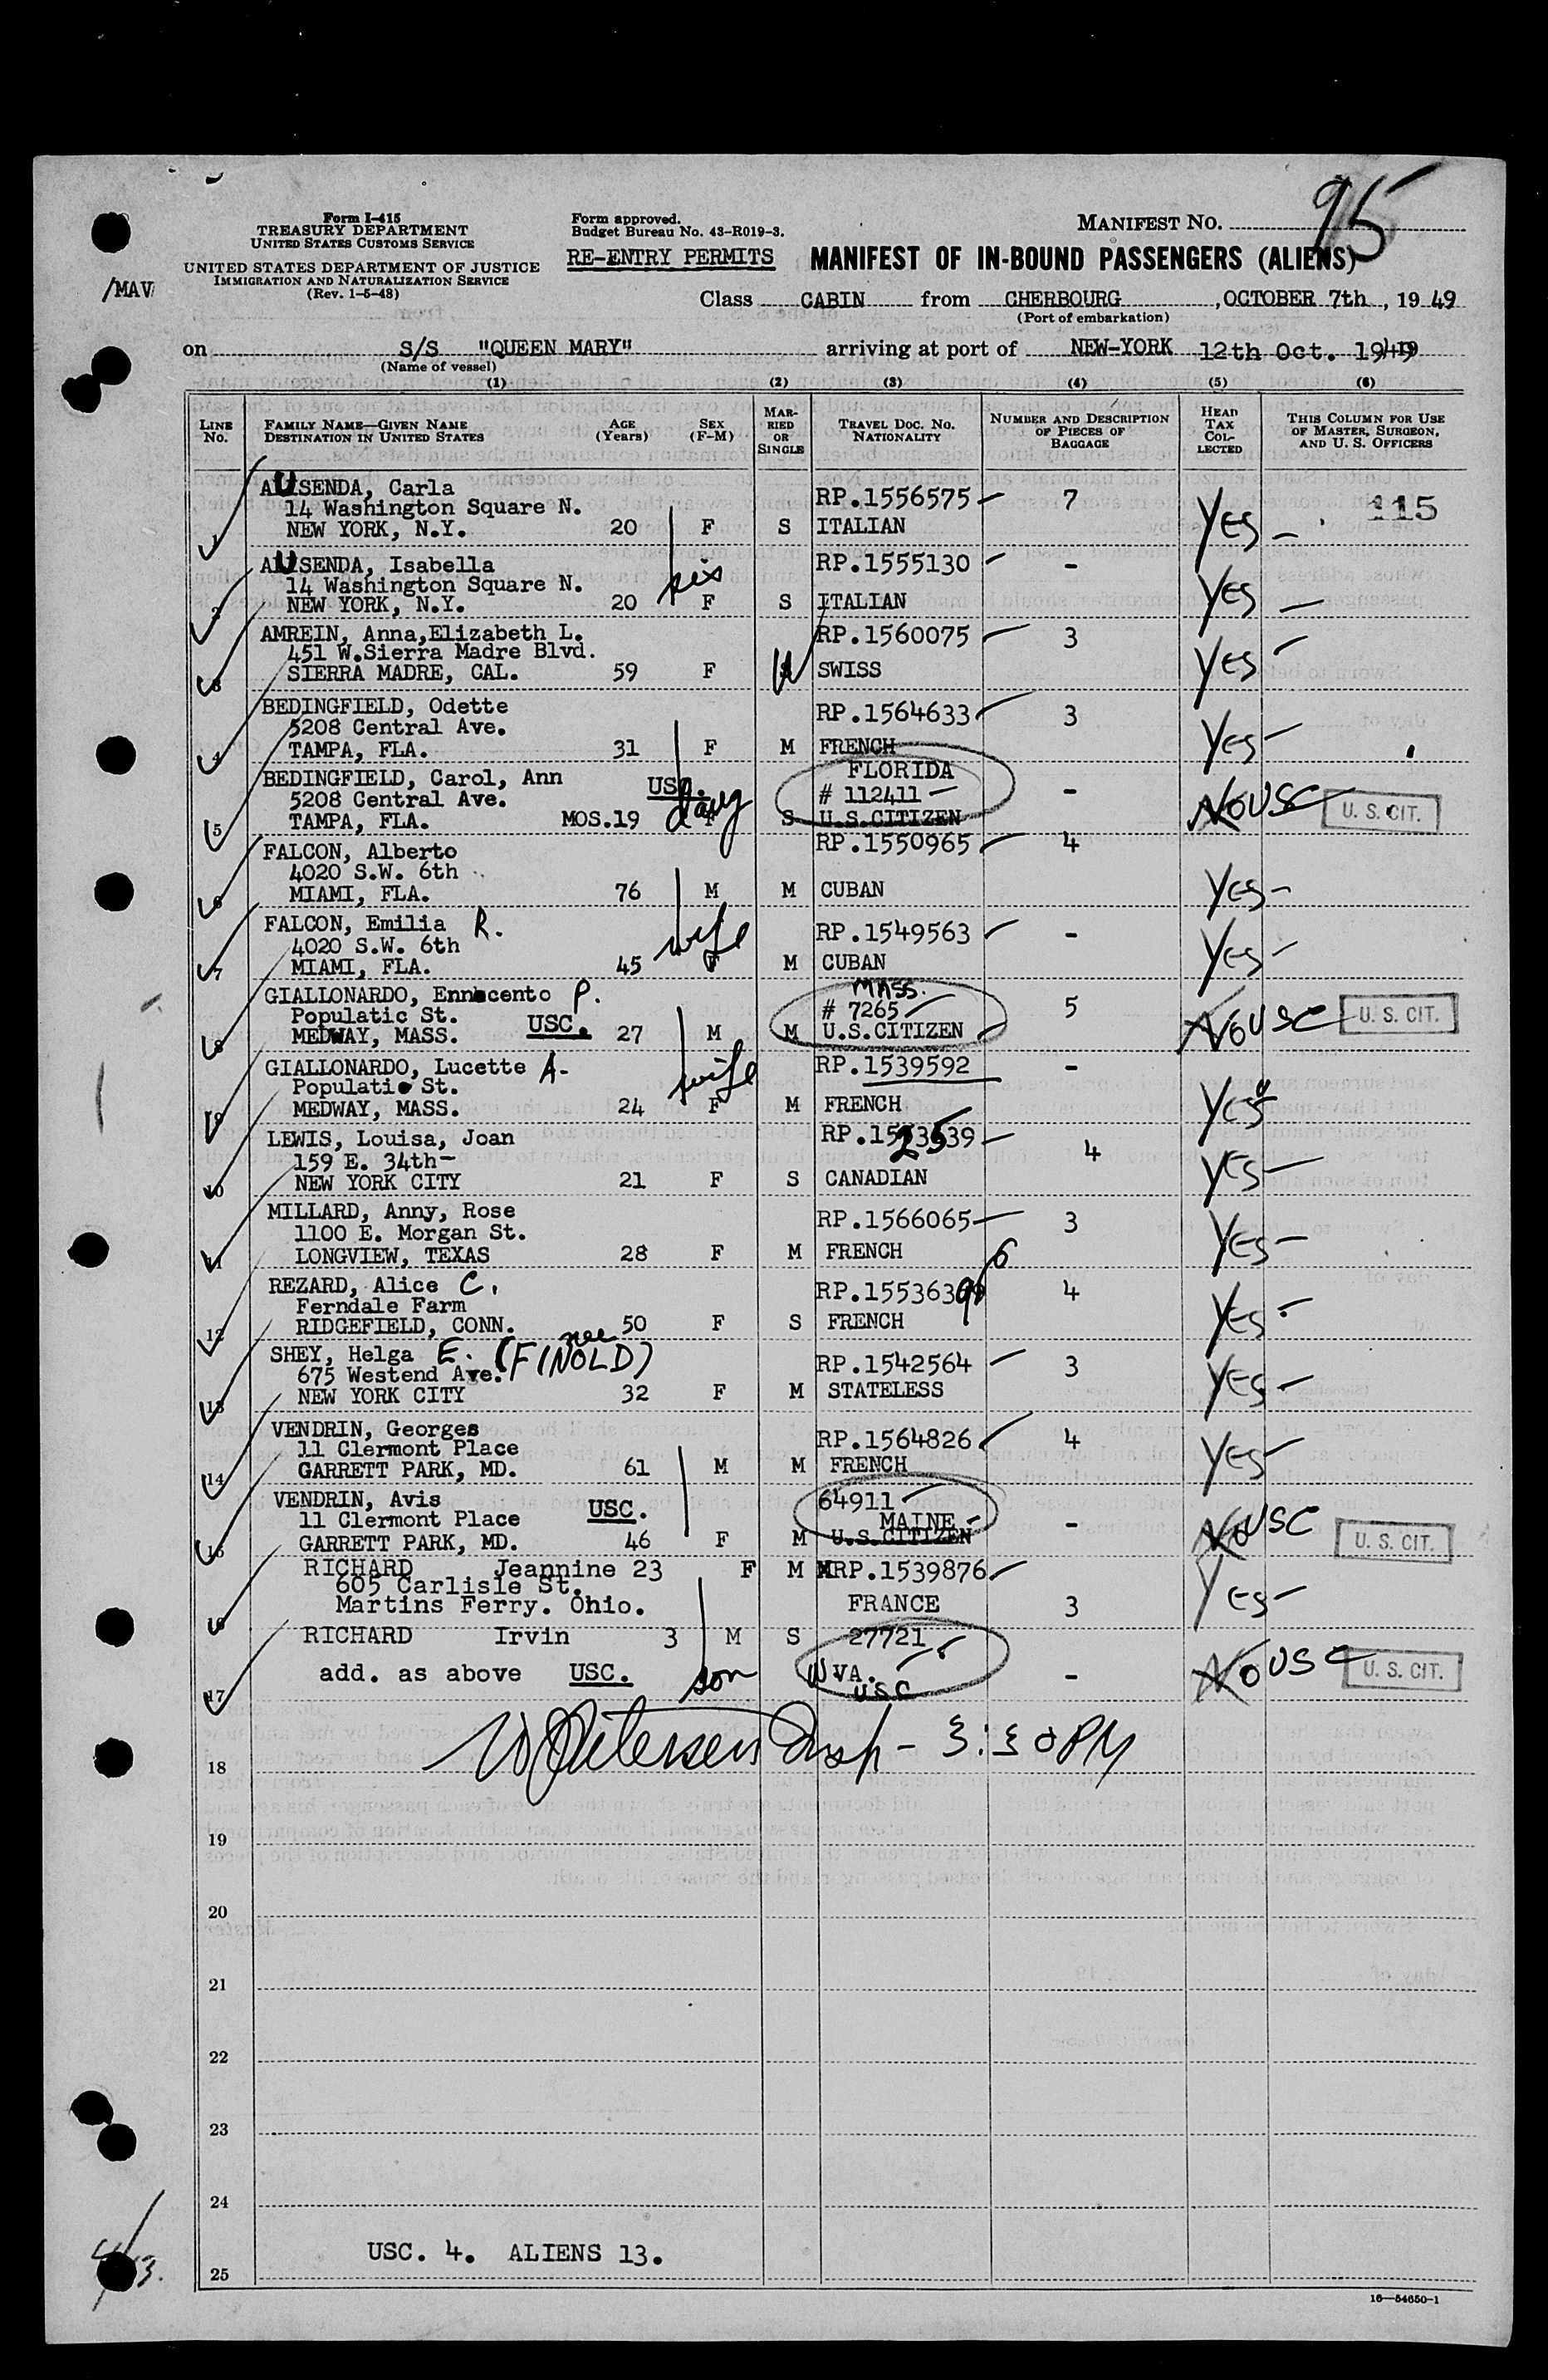 95
Form I-415
TREASURY DEPARTMENT
UNITED STATES CUSTOMS SERVICE
UNITED STATES DEPARTMENT OF JUSTICE
IMMIGRATION AND NATURALIZATION SERVICE
(Rev. 1-5-48)
/MAV
Form approved.
Budget Bureau No. 43-R019-3.
RE-ENTRY PERMITS
MANIFEST NO.
MANIFEST OF IN-BOUND PASSENGERS (ALIENS)
Class CABIN from CHERBOURG, OCTOBER 7th, 19 49
(Port of embarkation)
on S/S "QUEEN MARY" arriving at port of NEW-YORK 12th Oct. 1949
(Name of vessel)
(1) (2) (3) (4) (5) (6)
LINE NO.
FAMILY NAME—GIVEN NAME
DESTINATION IN UNITED STATES
AGE (Years)
SEX (F-M)
MARRIED OR SINGLE
TRAVEL DOC. NO. NATIONALITY
NUMBER AND DESCRIPTION OF PIECES OF BAGGAGE
HEAD TAX COLLECTED
THIS COLUMN FOR USE OF MASTER, SURGEON, AND U. S. OFFICERS
AUSENDA, Carla RP.1556575 7 115
14 Washington Square N.
1 NEW YORK, N.Y. 20 F S ITALIAN Yes
AUSENDA, Isabella RP.1555130 -
14 Washington Square N. sis
2 NEW YORK, N.Y. 20 F S ITALIAN Yes
AMREIN, Anna,Elizabeth L. RP.1560075 3
451 W.Sierra Madre Blvd.
3 SIERRA MADRE, CAL. 59 F W SWISS Yes
BEDINGFIELD, Odette RP.1564633 3
5208 Central Ave.
4 TAMPA, FLA. 31 F M FRENCH Yes
BEDINGFIELD, Carol, Ann USC. FLORIDA
5208 Central Ave. daug # 112411 -
5 TAMPA, FLA. MOS.19 F S U.S.CITIZEN No USC U. S. CIT.
FALCON, Alberto RP.1550965 4
4020 S.W. 6th
6 MIAMI, FLA. 76 M M CUBAN Yes
FALCON, Emilia R. RP.1549563 -
4020 S.W. 6th wife
7 MIAMI, FLA. 45 F M CUBAN Yes
GIALLONARDO, Ennocento P. MASS.
Populatic St. USC. # 7265 5
8 MEDWAY, MASS. 27 M M U.S.CITIZEN No USC U. S. CIT.
GIALLONARDO, Lucette A. RP.1539592 -
Populatic St. wife
9 MEDWAY, MASS. 24 F M FRENCH Yes
LEWIS, Louisa, Joan 4
159 E. 34th-
10 NEW YORK CITY 21 F S CANADIAN Yes
MILLARD, Anny, Rose RP.1566065 3
1100 E. Morgan St.
11 LONGVIEW, TEXAS 28 F M FRENCH Yes
REZARD, Alice C. 4
Ferndale Farm
12 RIDGEFIELD, CONN. 50 F S FRENCH Yes
SHEY, Helga E. (nee FINOLD) RP.1542564 3
675 Westend Ave.
13 NEW YORK CITY 32 F M STATELESS Yes
VENDRIN, Georges RP.1564826 4
11 Clermont Place
14 GARRETT PARK, MD. 61 M M FRENCH Yes
VENDRIN, Avis USC. 64911
11 Clermont Place MAINE -
15 GARRETT PARK, MD. 46 F M U.S.CITIZEN No USC U. S. CIT.
RICHARD Jeannine 23 F M RP.1539876
605 Carlisle St.
16 Martins Ferry. Ohio. FRANCE 3 Yes
RICHARD Irvin 3 M S 27721
add. as above USC. son W.VA. - No USC U. S. CIT.
17 USC
Insp - 3:30PM
18
19
20
21
22
23
24
USC. 4. ALIENS 13.
25
16—54650-1